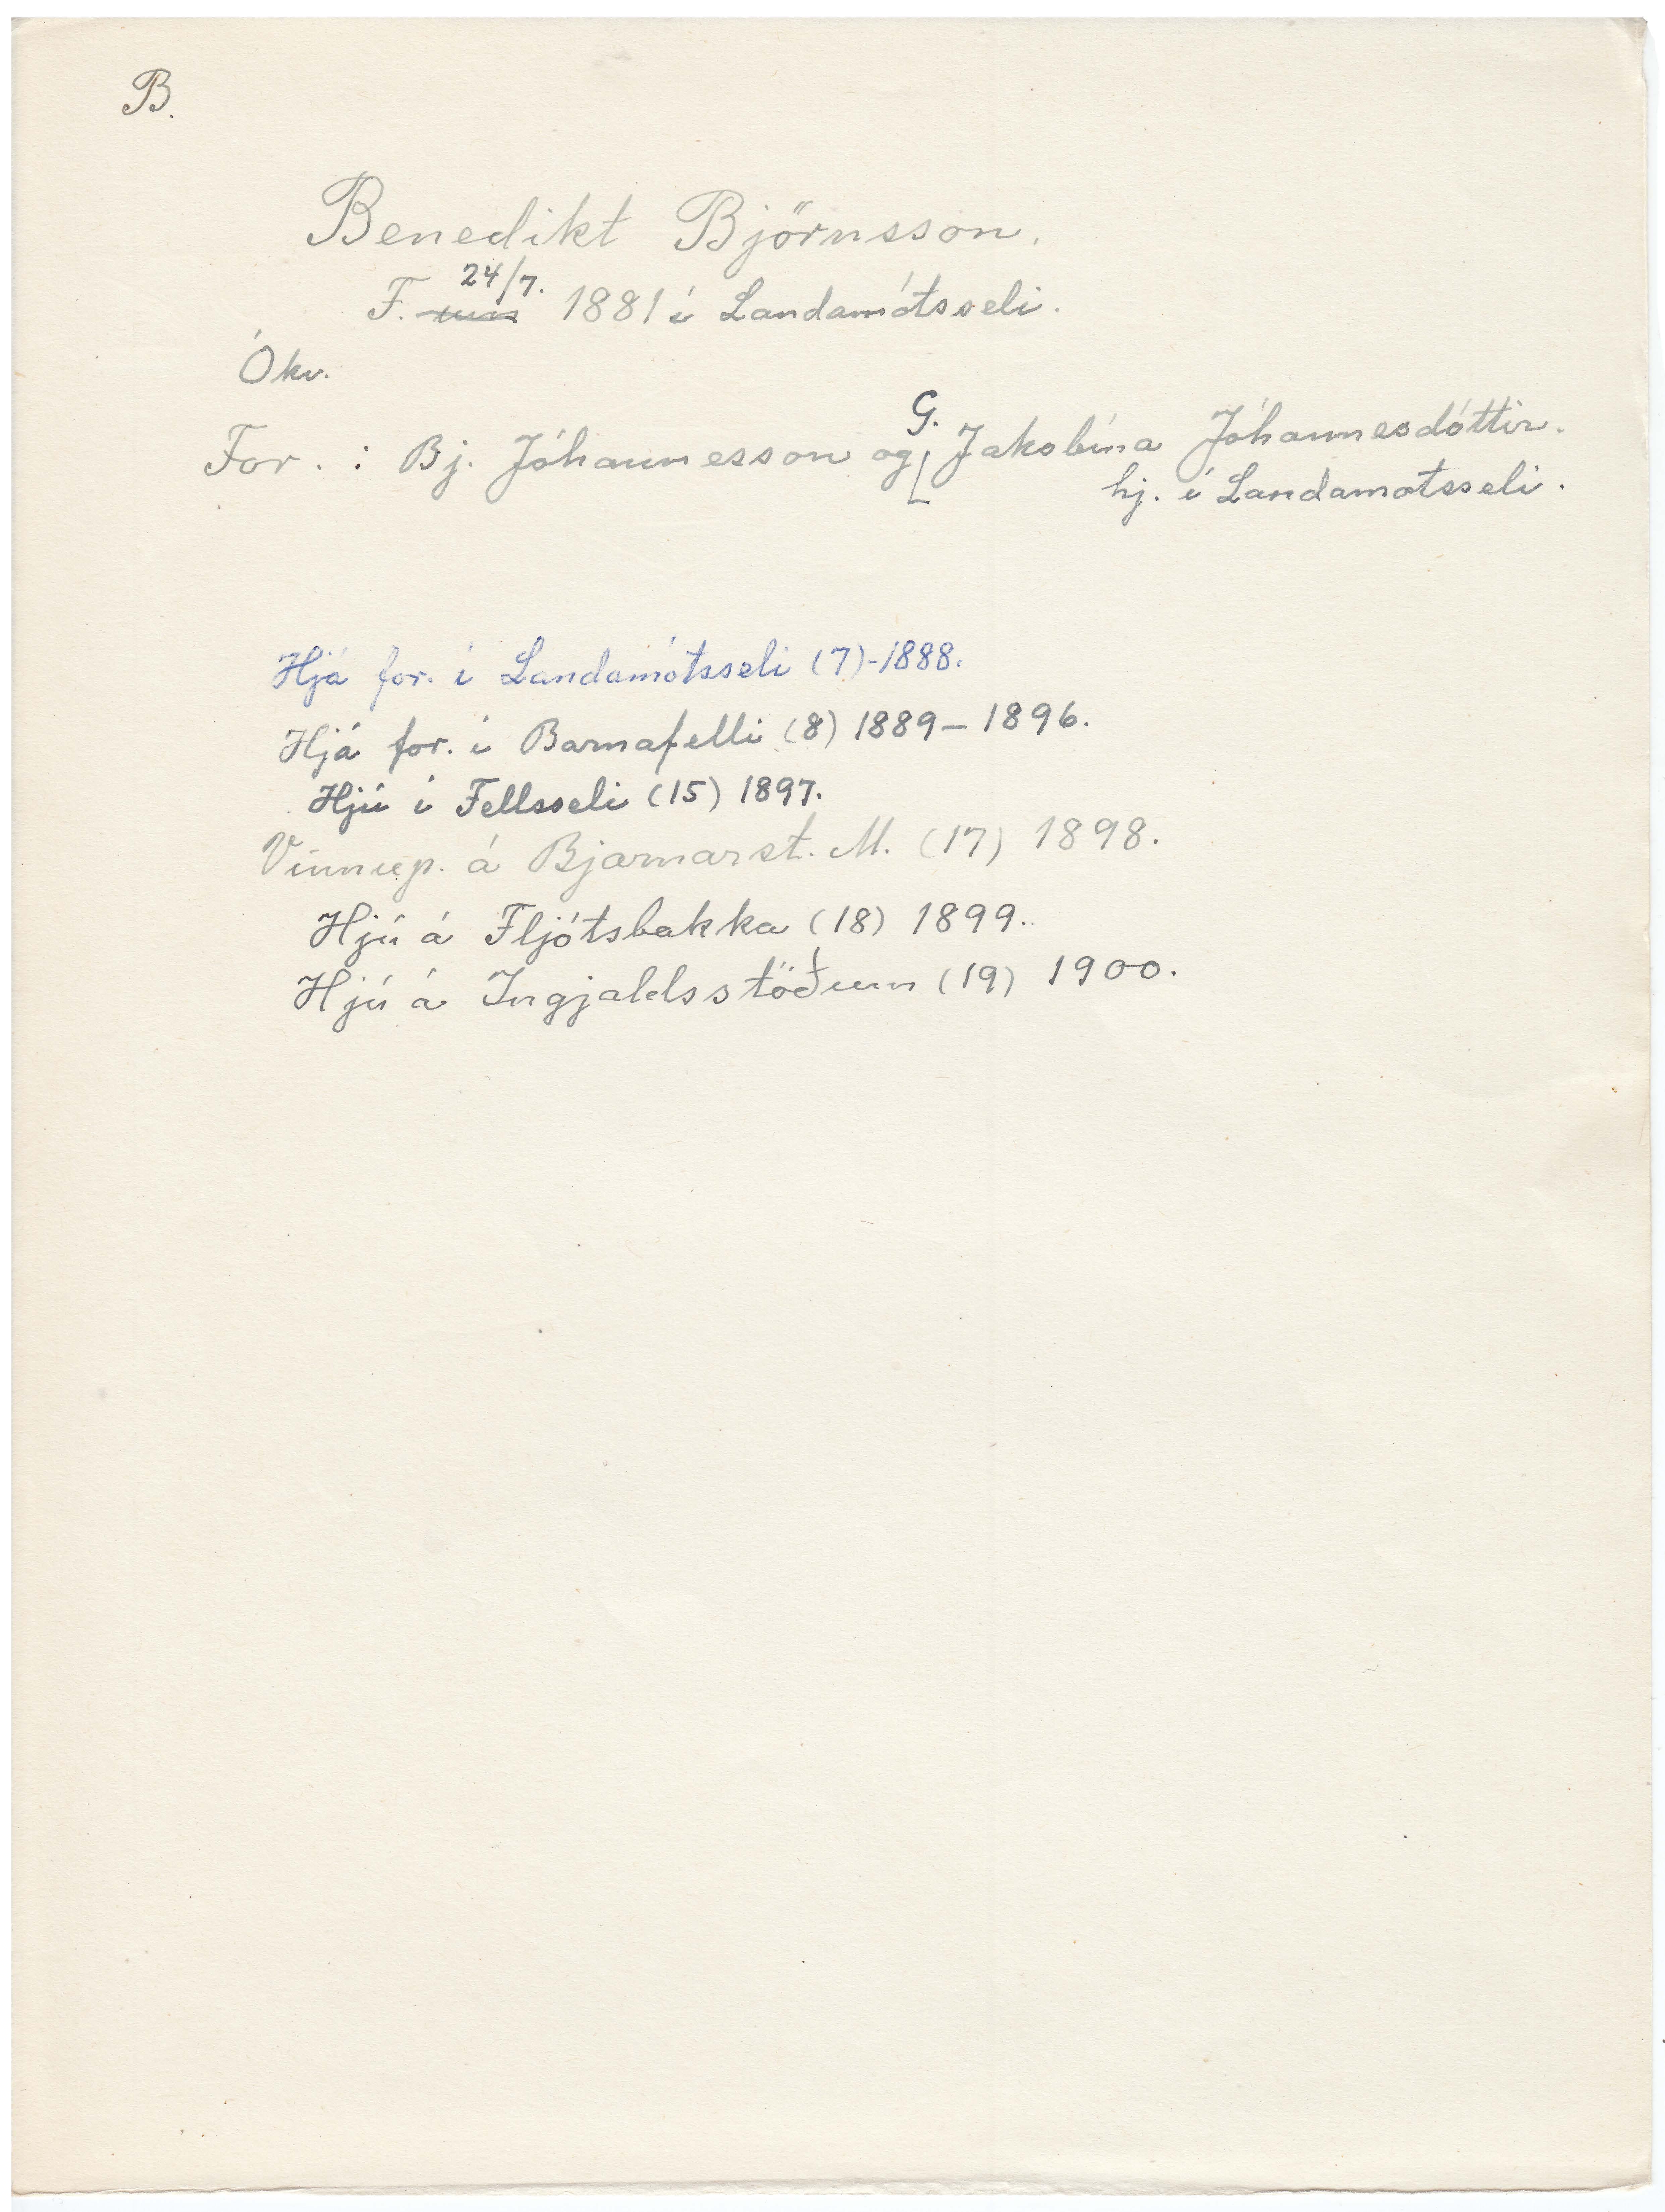 B.
Benedikt Björnsson.
F. um 24/7. 1881 í Landamótsseli.
Ókv.
For. : Bj. Jóhannesson og G. Jakobína Jóhannesdóttir.
hj. í Landamotsseli.
Hjá for. í Landamótsseli (7)-1888.
Hjá for. í Barnafelli (8) 1889-1896.
Hjú í Fellsseli (15) 1897.
Vinnup. á Bjarnarst. M. (17) 1898.
Hjú á Fljótsbakka (18) 1899.
Hjú á Ingjaldsstöðum (19) 1900.